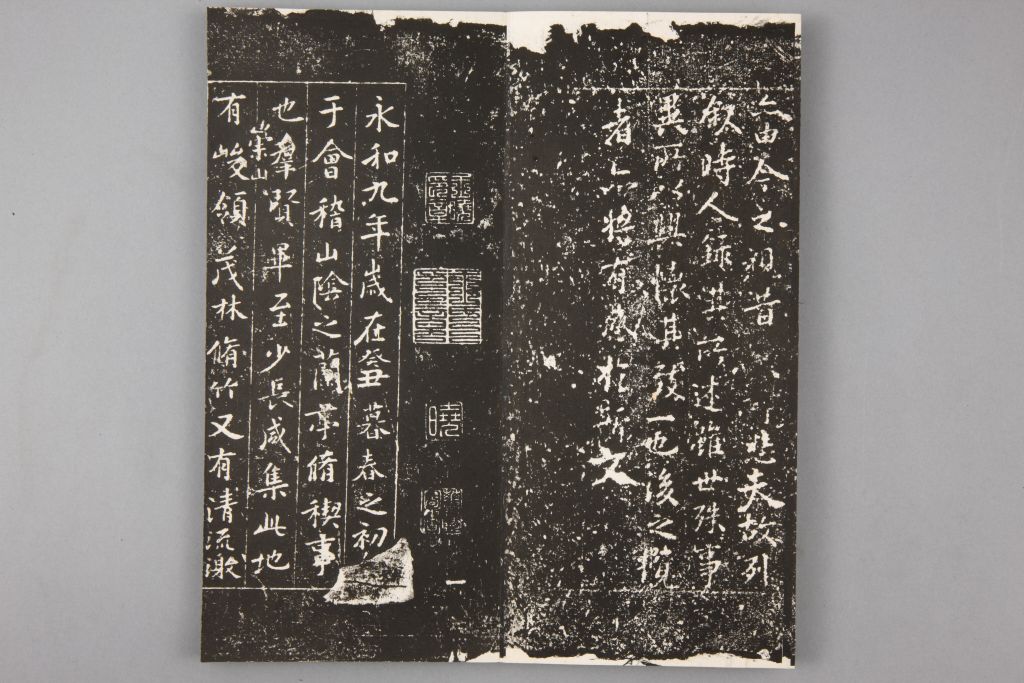 亦由今之視昔悲夫故列
敘時人錄其所述雖世殊事
異所以興懷其致一也後之攬
者亦將有感於斯文
一
永和九年歲在癸丑暮春之初
于會稽山陰之蘭亭脩稧事
也羣賢畢至少長咸集此地
有崇山峻領茂林脩竹又有清流激